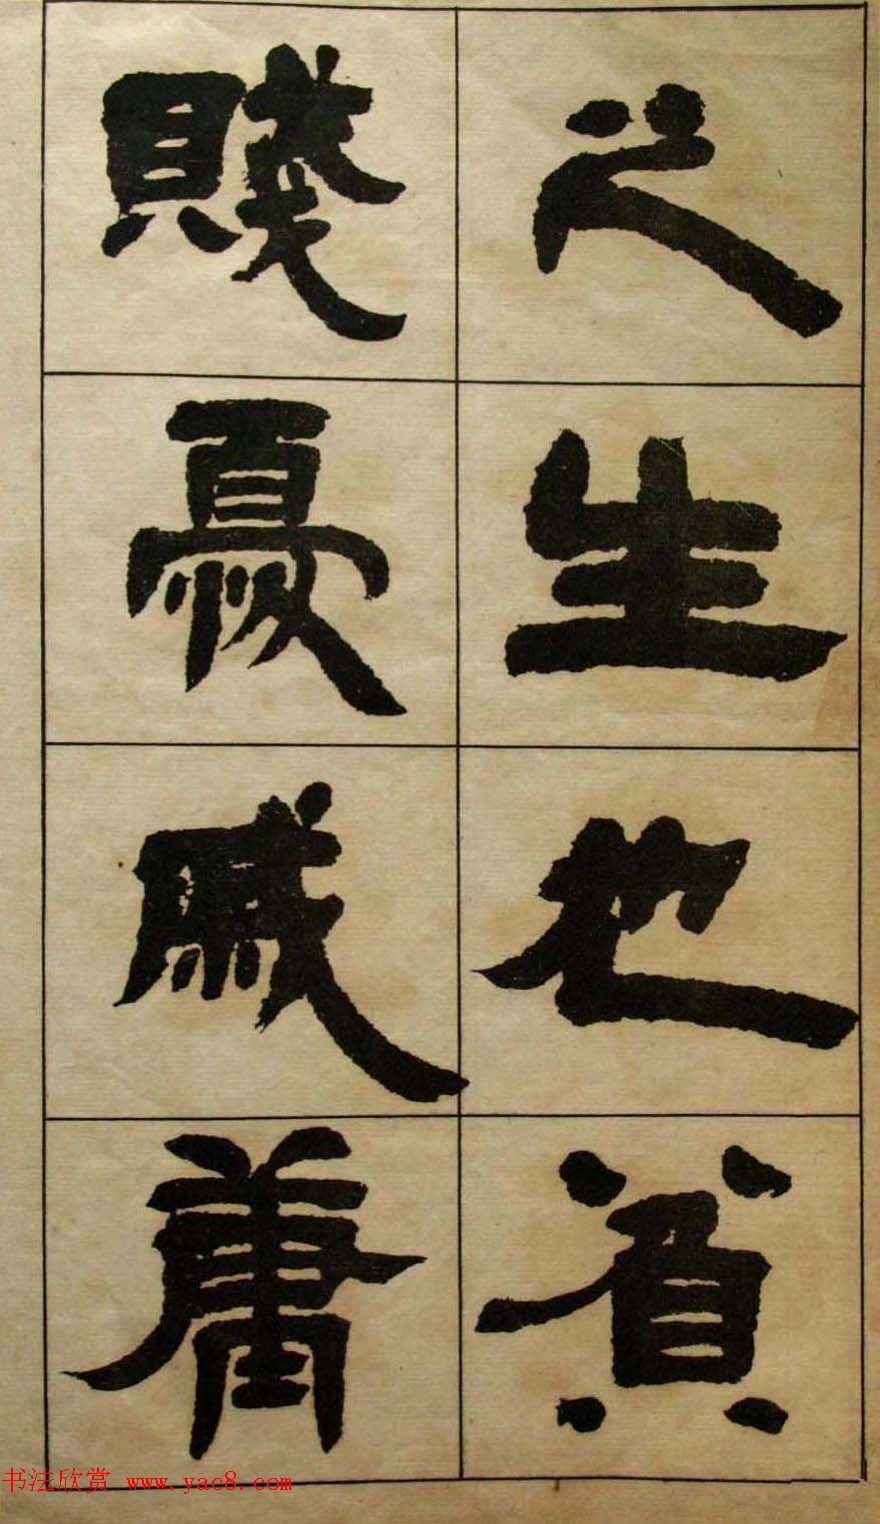 之生也貧
賤憂戚庸
书法欣赏 www.yac8.com